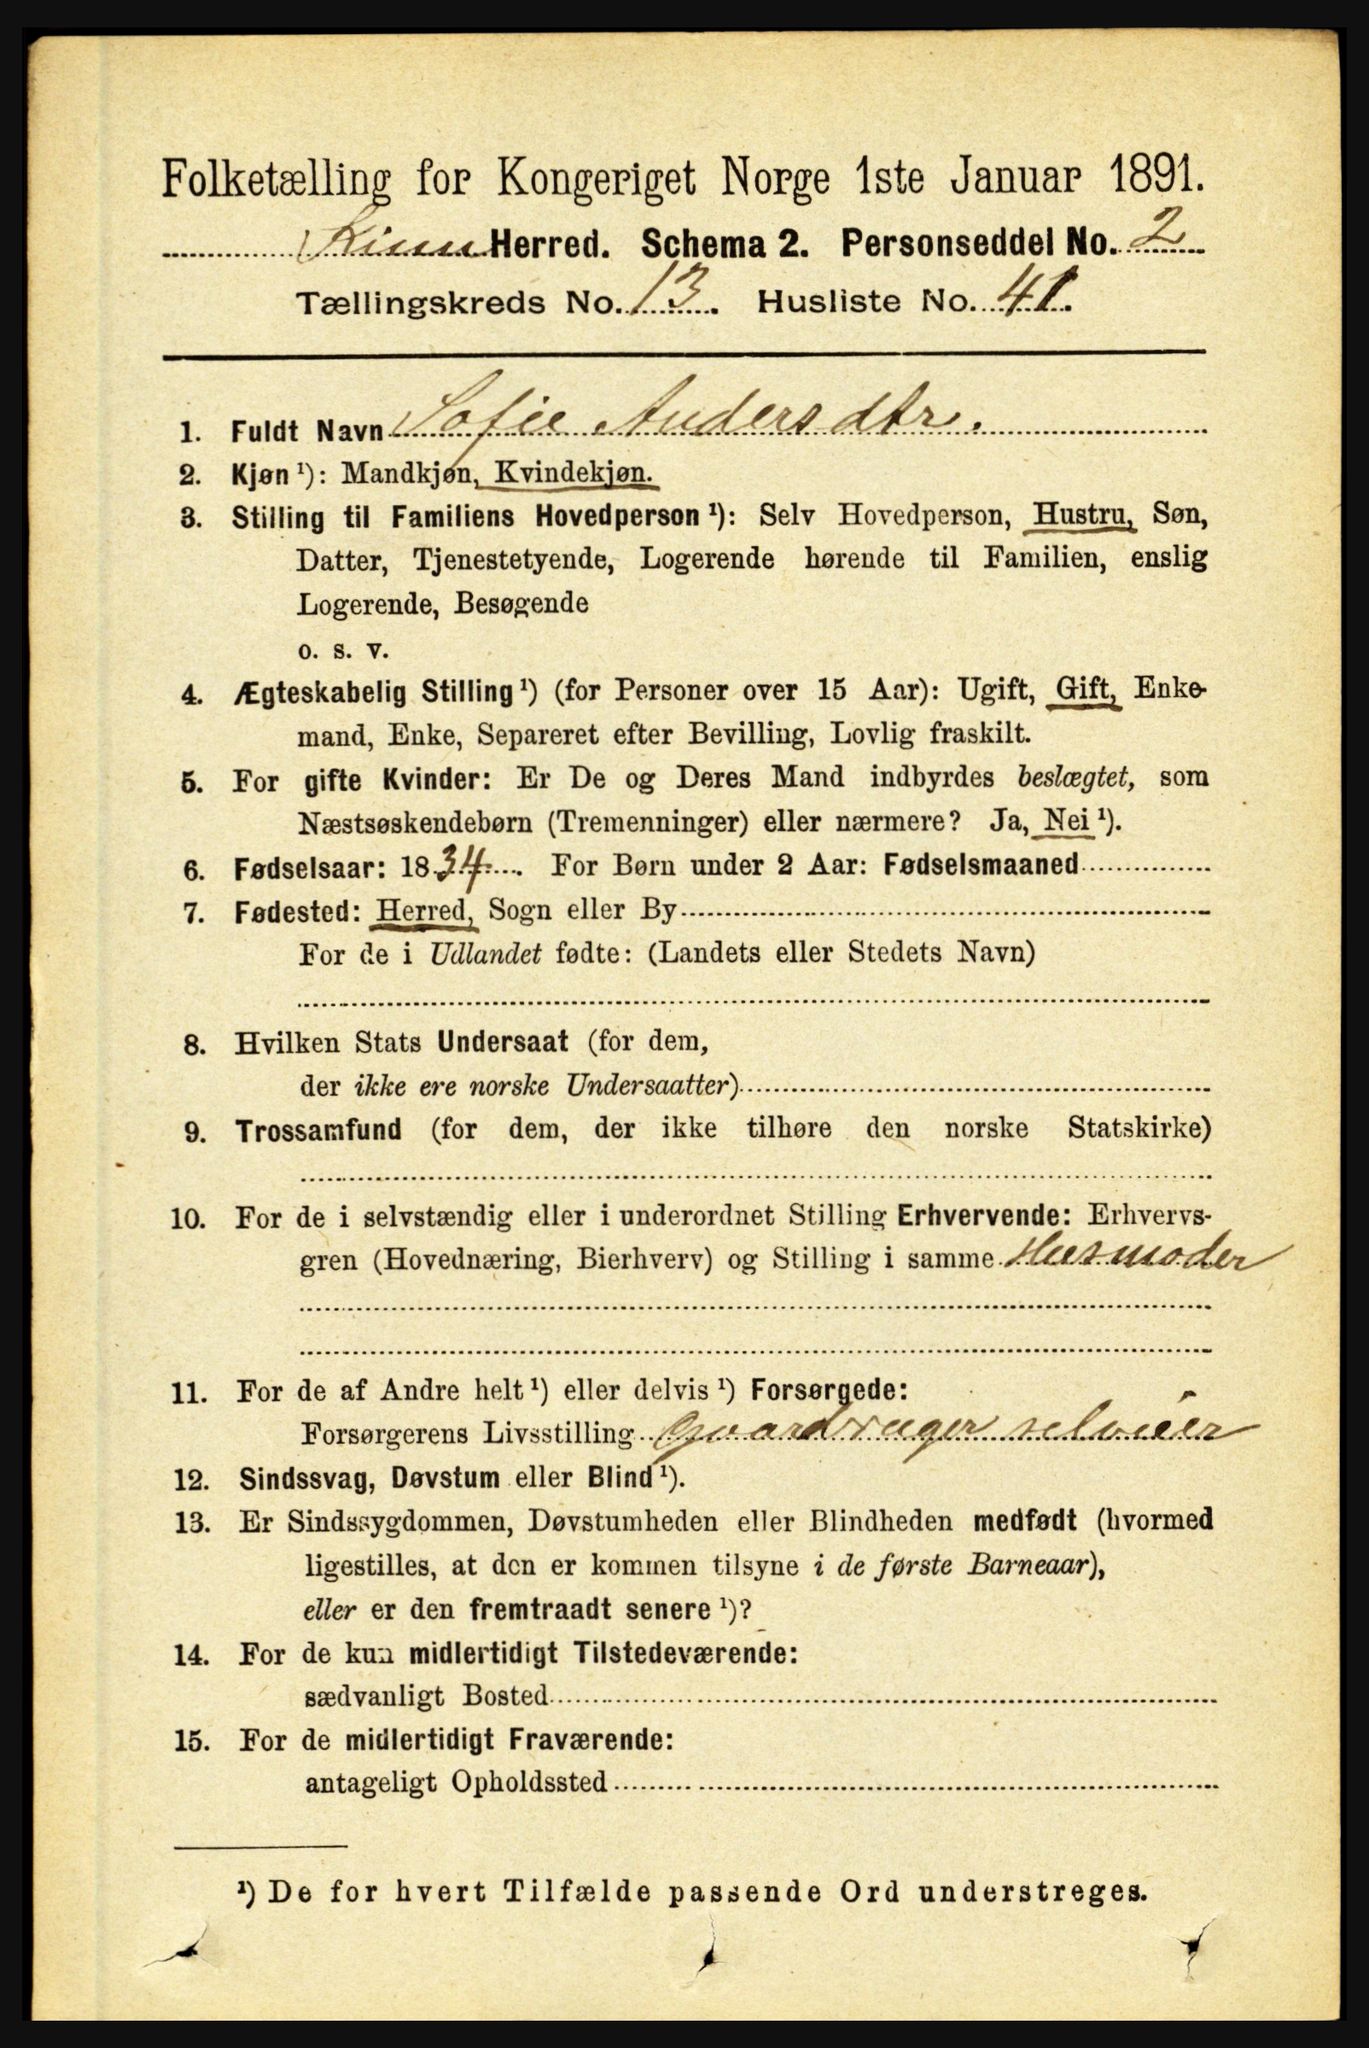 Folketælling for Kongeriget Norge 1ste Januar 1891.
Kinn Herred. Schema 2. Personseddel No. 2
Tællingskreds No. 13. Husliste No. 41.
1. Fuldt Navn Sofie Andersdtr.
2. Kjøn ¹): Mandkjøn, Kvindekjøn.
3. Stilling til Familiens Hovedperson ¹): Selv Hovedperson, Hustru, Søn,
Datter, Tjenestetyende, Logerende hørende til Familien, enslig
Logerende, Besøgende
o. s. v.
4. Ægteskabelig Stilling ¹) (for Personer over 15 Aar): Ugift, Gift, Enke-
mand, Enke, Separeret efter Bevilling, Lovlig fraskilt.
5. For gifte Kvinder: Er De og Deres Mand indbyrdes beslægtet, som
Næstsøskendebørn (Tremenninger) eller nærmere? Ja, Nei ¹).
6. Fødselsaar: 1834. For Børn under 2 Aar: Fødselsmaaned
7. Fødested: Herred, Sogn eller By
For de i Udlandet fødte: (Landets eller Stedets Navn)
8. Hvilken Stats Undersaat (for dem,
der ikke ere norske Undersaatter)
9. Trossamfund (for dem, der ikke tilhøre den norske Statskirke)
10. For de i selvstændig eller i underordnet Stilling Erhvervende: Erhvervs-
gren (Hovednæring, Bierhverv) og Stilling i samme Husmoder
11. For de af Andre helt ¹) eller delvis ¹) Forsørgede:
Forsørgerens Livsstilling Gaardbruger selveier
12. Sindssvag, Døvstum eller Blind ¹).
13. Er Sindssygdommen, Døvstumheden eller Blindheden medfødt (hvormed
ligestilles, at den er kommen tilsyne i de første Barneaar),
eller er den fremtraadt senere ¹)?
14. For de kun midlertidigt Tilstedeværende:
sædvanligt Bosted
15. For de midlertidigt Fraværende:
antageligt Opholdssted
¹) De for hvert Tilfælde passende Ord understreges.